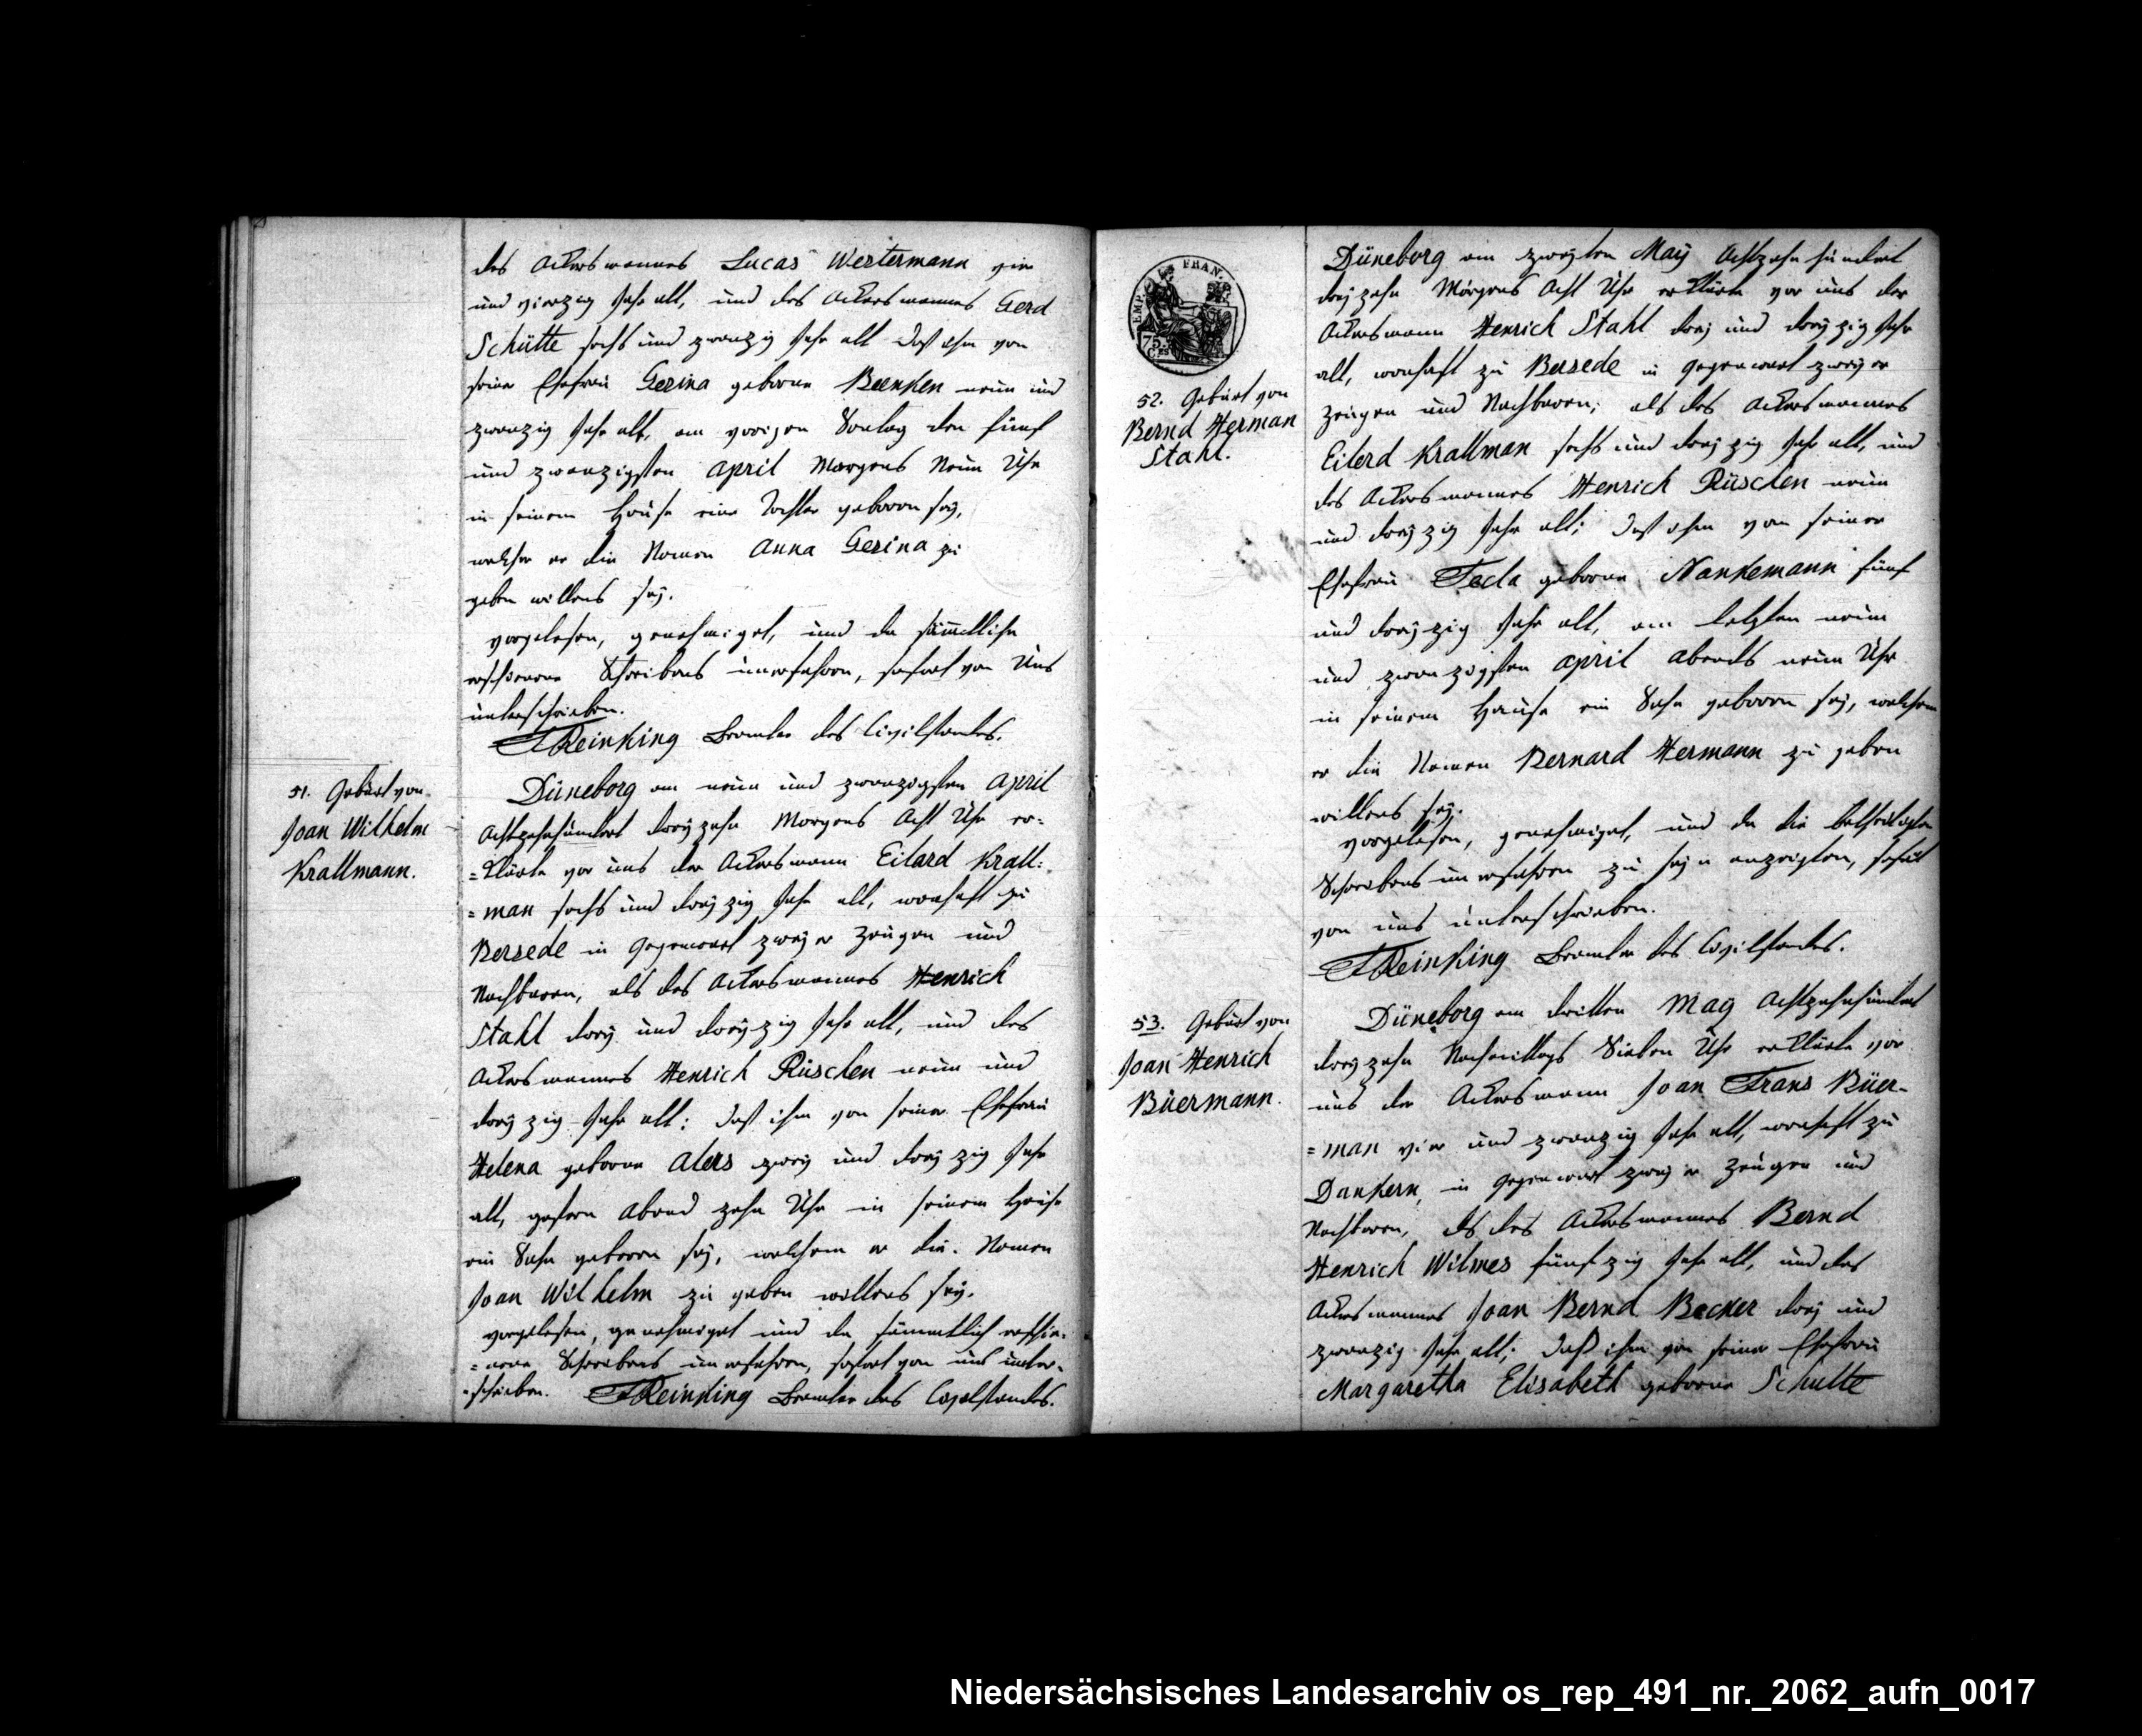 des Ackersmannes Lucas Westermann vier
und vierzig Jahr alt, und des Ackersmannes Gerd
Schütte sechs und zwanzig Jahr alt daß ihm von
seiner Ehefrau Gesina geborne Beenken neun und
zwanzig Jahr alt, am vorigen Sontag den fünf
und zwanzigsten April Morgens Neun Uhr
in seinem Hause eine Tochter geboren seÿ,
welcher er die Namen Anna Gesina zu
geben willens seÿ.
vorgelesen, genehmiget, und da sämmtliche
erschienene Schreibens unerfahren, sofort von Uns
unterschrieben.
Reinking Beamter des Civilstandes.
51. Geburt von
Joan Wilhelm
Krallmann.
Düneborg am neun und zwanzigsten April
Achtzehnhundert dreÿzehn Morgens Acht Uhr er=
=klärte vor uns der Ackersmann Eilard Krall=
=man sechs und dreÿzig Jahr alt, wonhaft zu
Bersede in Gegenwart zweÿer Zeugen und
Nachbaren, als des Ackersmannes Henrich
Stahl dreÿ und dreÿzig Jahr alt, und des
Ackersmannes Henrich Rüschen neun und
dreÿzig Jahr alt; daß ihm von seiner Ehefrau
Helena geborne Alers zweÿ und dreÿzig Jahr
alt, gestern Abend zehn Uhr in seinem Hause
ein Sohn geboren seÿ, welchem er die Namen
Joan Wilhelm zu geben willens seÿ.
vorgelesen, genehmiget und da sämmtlich erschie=
=nene Schreibens unerfahren, sofort von uns unter=
=schrieben. Reinking Beamter des Civilstandes.
EMP. FRAN.
75.
C.ES
52. Geburt von
Bernd Herman
Stahl.
Düneborg am zweÿten Maÿ Achtzehnhundert
dreÿzehn Morgens Acht Uhr erklärte vor uns der
Ackersmann Henrich Stahl dreÿ und dreÿzig Jahr
alt, wonhaft zu Bersede in Gegenwart zweÿer
Zeugen und Nachbaren; als des Ackersmannes
Eilerd Krallman sechs und dreÿzig Jahr alt, und
des Ackersmannes Henrich Rüschen neun
und dreÿzig Jahr alt; daß ihm von seiner
Ehefrau Tecla geborne Nankemann fünf
und dreÿzig Jahr alt, am letzten neun
und zwanzigsten April Abends neun Uhr
in seinem Hause ein Sohn geboren seÿ, welchem
er die Namen Bernard Hermann zu geben
willens seÿ.
vorgelesen, genehmiget, und da die betheiligten
Schreibens unerfahren zu seÿn anzeigten, sofort
von uns unterschrieben.
Reinking Beamter des Civilstandes.
53. Geburt von
Joan Henrich
Büermann.
Düneborg am dritten Maÿ Achtzehnhundert
dreÿzehn Nachmittags Sieben Uhr erklärte vor
uns der Ackersmann Joan Frans Büer=
=man vier und zwanzig Jahr alt, wonhaft zu
Dankern, in Gegenwart zweÿer Zeugen und
Nachbaren, als des Ackersmannes Bernd
Henrich Wilmes fünfzig Jahr alt, und des
Ackersmannes Joan Bernd Becker dreÿ und
zwanzig Jahr alt; daß ihm von seiner Ehefrau
Margaretha Elisabeth geborne Schulte
Niedersächsisches Landesarchiv os_rep_491_nr._2062_aufn_0017